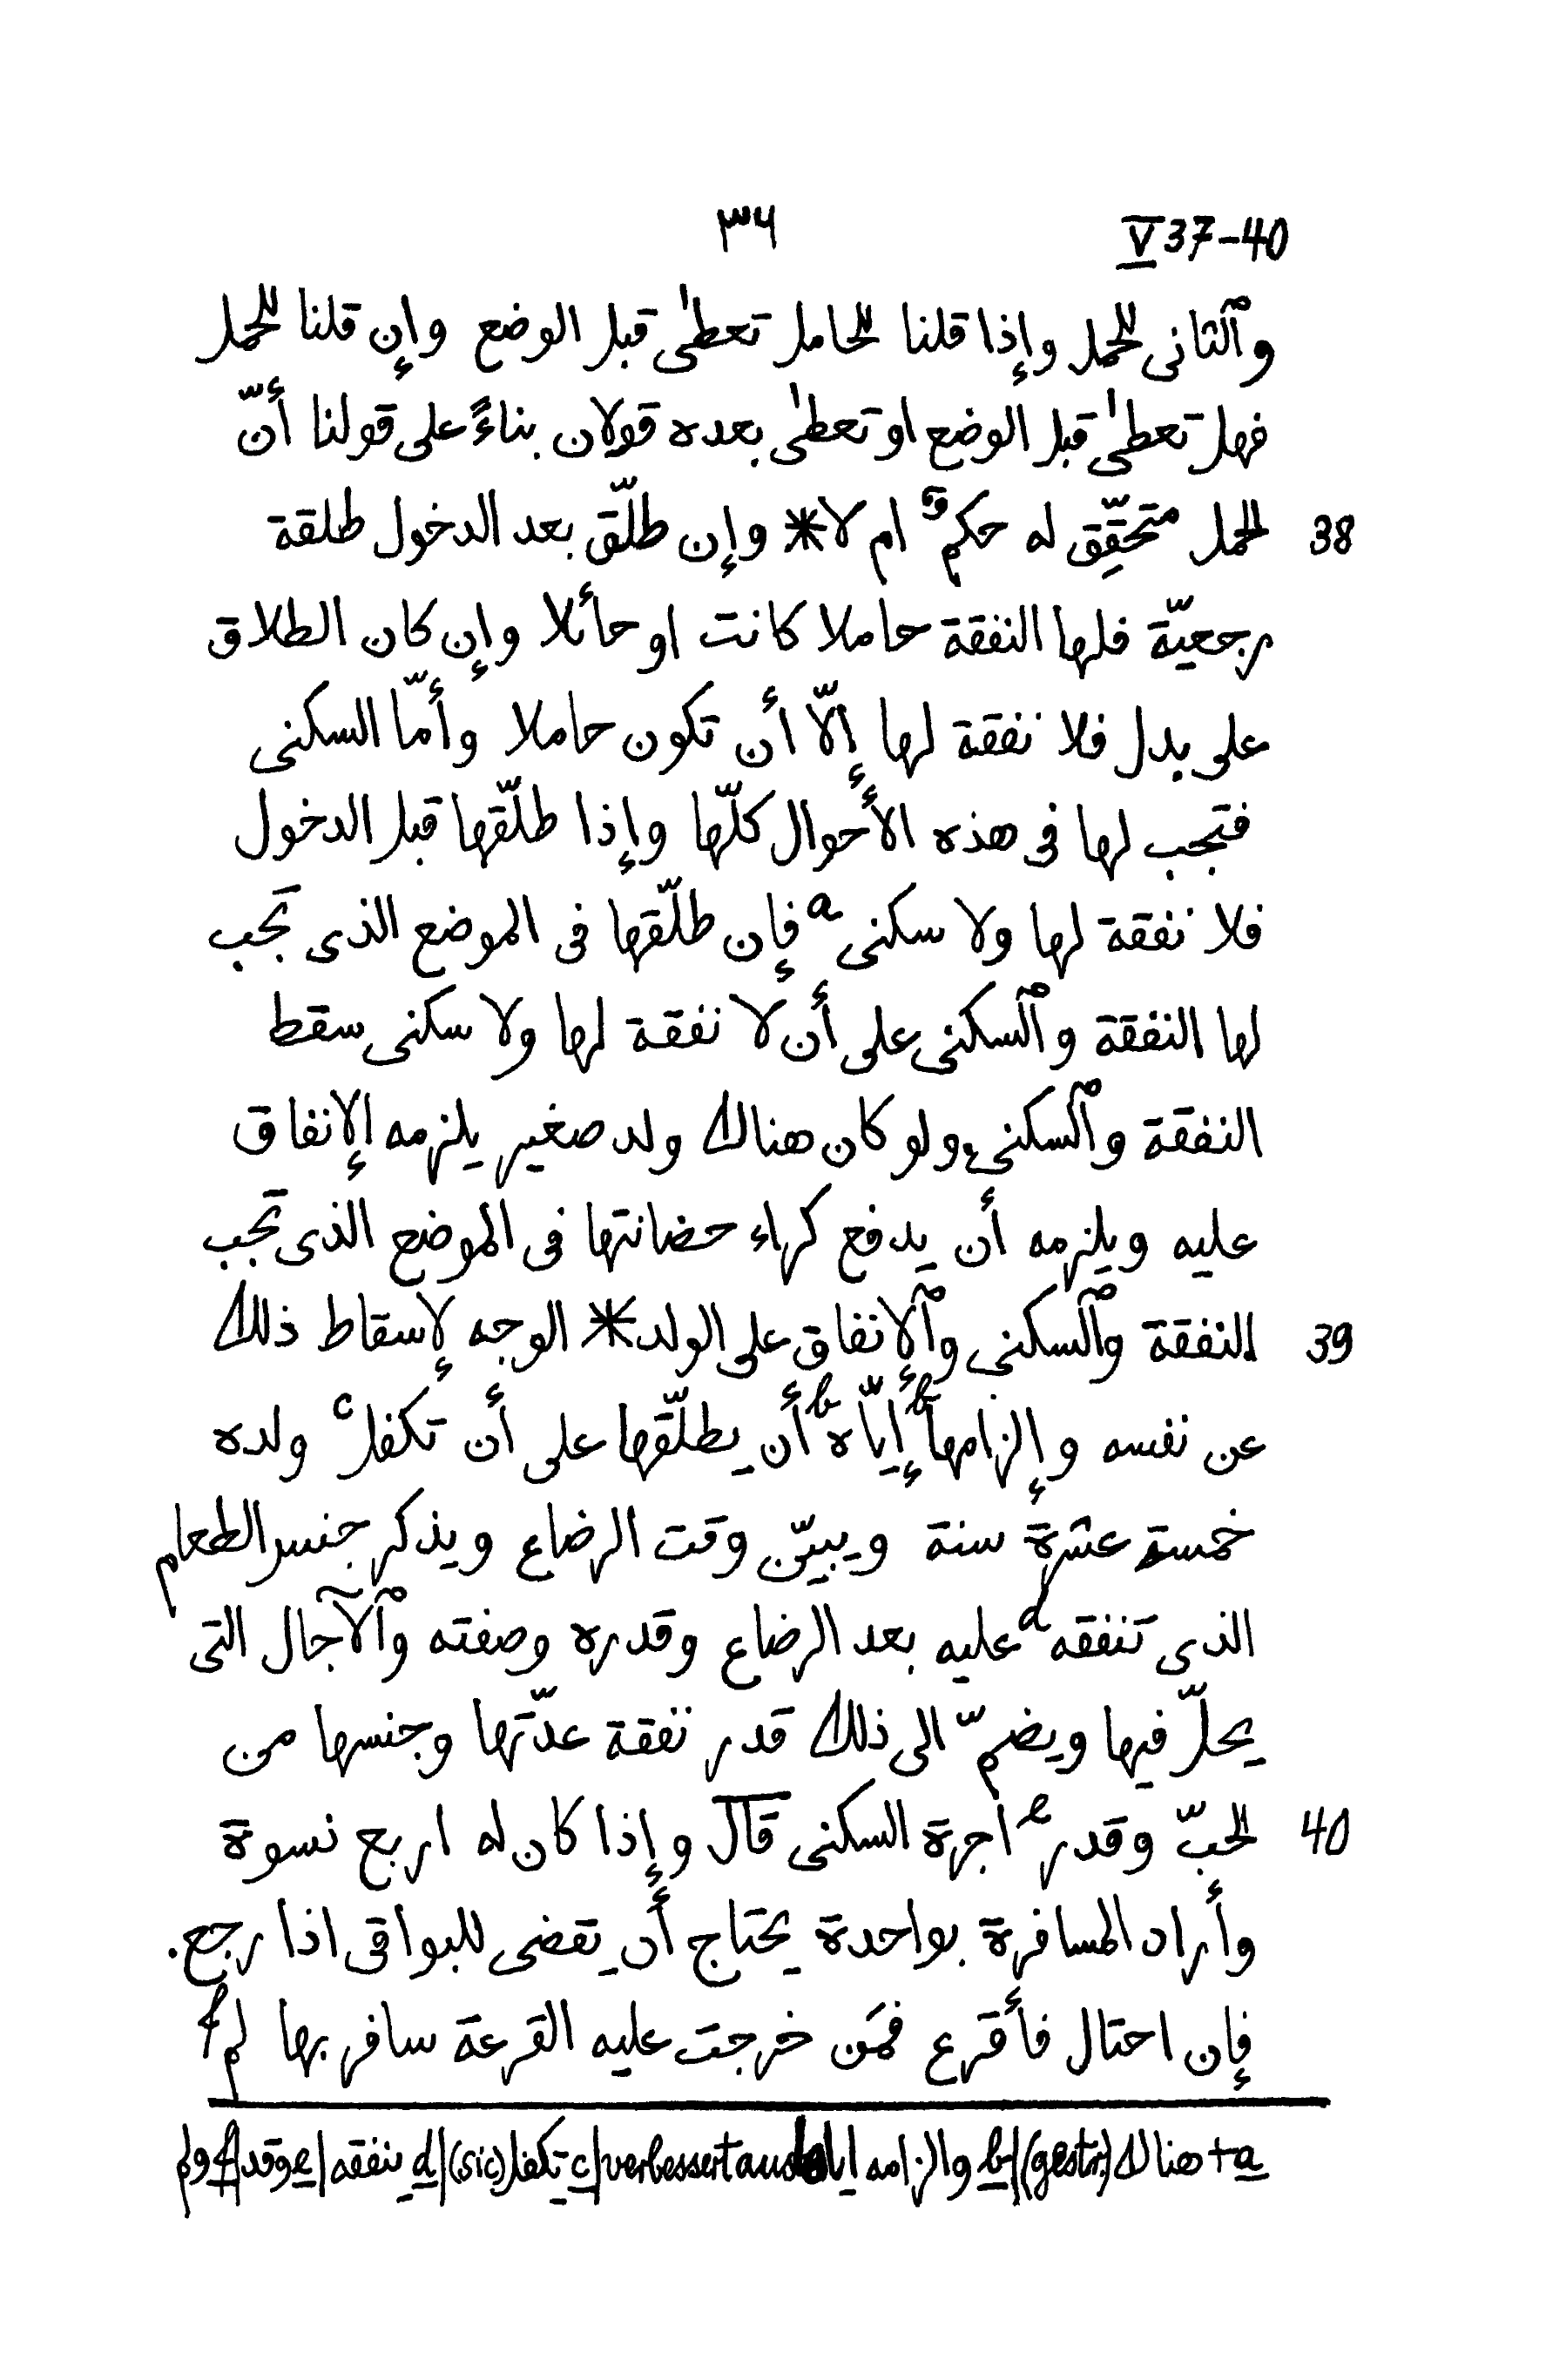 V 37-40
٣٦
وٱلثانى للحمل وإذا قلنا للحامل تعطىٰ قبل الوضع وإن قلنا للحمل
فهل تعطىٰ قبل الوضع او تعطىٰ بعده قولان بناءً على قولنا أنّ
38 الحمل متحقِّق له حكمٌ ام لا* وإن طلّق بعد الدخول طلقة
رجعيّة فلها النفقة حاملا كانت او حائلا وإن كان الطلاق
على بدل فلا نفقة لها إلّا أن تكون حاملا وأمّا السكنى
فتجب لها فى هذه الأحوال كلّها وإذا طلّقها قبل الدخول
فلا نفقة لها ولا سكنى a فإن طلّقها فى الموضع الذى تجب
لها النفقة وٱلسكنى على أن لا نفقة لها ولا سكنى سقط
النفقة وٱلسكنى ولو كان هناك ولد صغير يلزمه الإنفاق
عليه ويلزمه أن يدفع كراء حضانتها فى الموضع الذى تجب
39 النفقة وٱلسكنى وٱلإنفاق على الولد* الوجه لإسقاط ذلك
عن نفسه وإلزامها b إيّاه b أن يطلّقها على أن تكفل c ولده
خمسة عشرة سنة ويبيّن وقت الرضاع ويذكر جنس الطعام
الذى تنفقه d عليه بعد الرضاع وقدره وصفته وٱلآجال التى
يحلّ فيها ويضمّ الى ذلك قدر نفقة عدّتها وجنسها من
40 الحبّ وقدر e اجرة السكنى قال وإذا كان له اربع نسوة
وأراد المسافرة بواحدة يحتاج أن يقضى للبواقى اذا رجع.
فإن احتال فأقرع فمَن خرجت عليه القرعة سافر بها لم f
a + هنالك (gestr.) | b والزامه اياها verbessert aus | c تكفل (sic) | d ينفقه | e وقد | f ولم